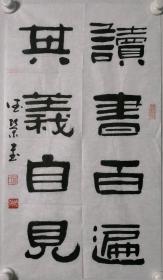 讀書百遍
其義自見